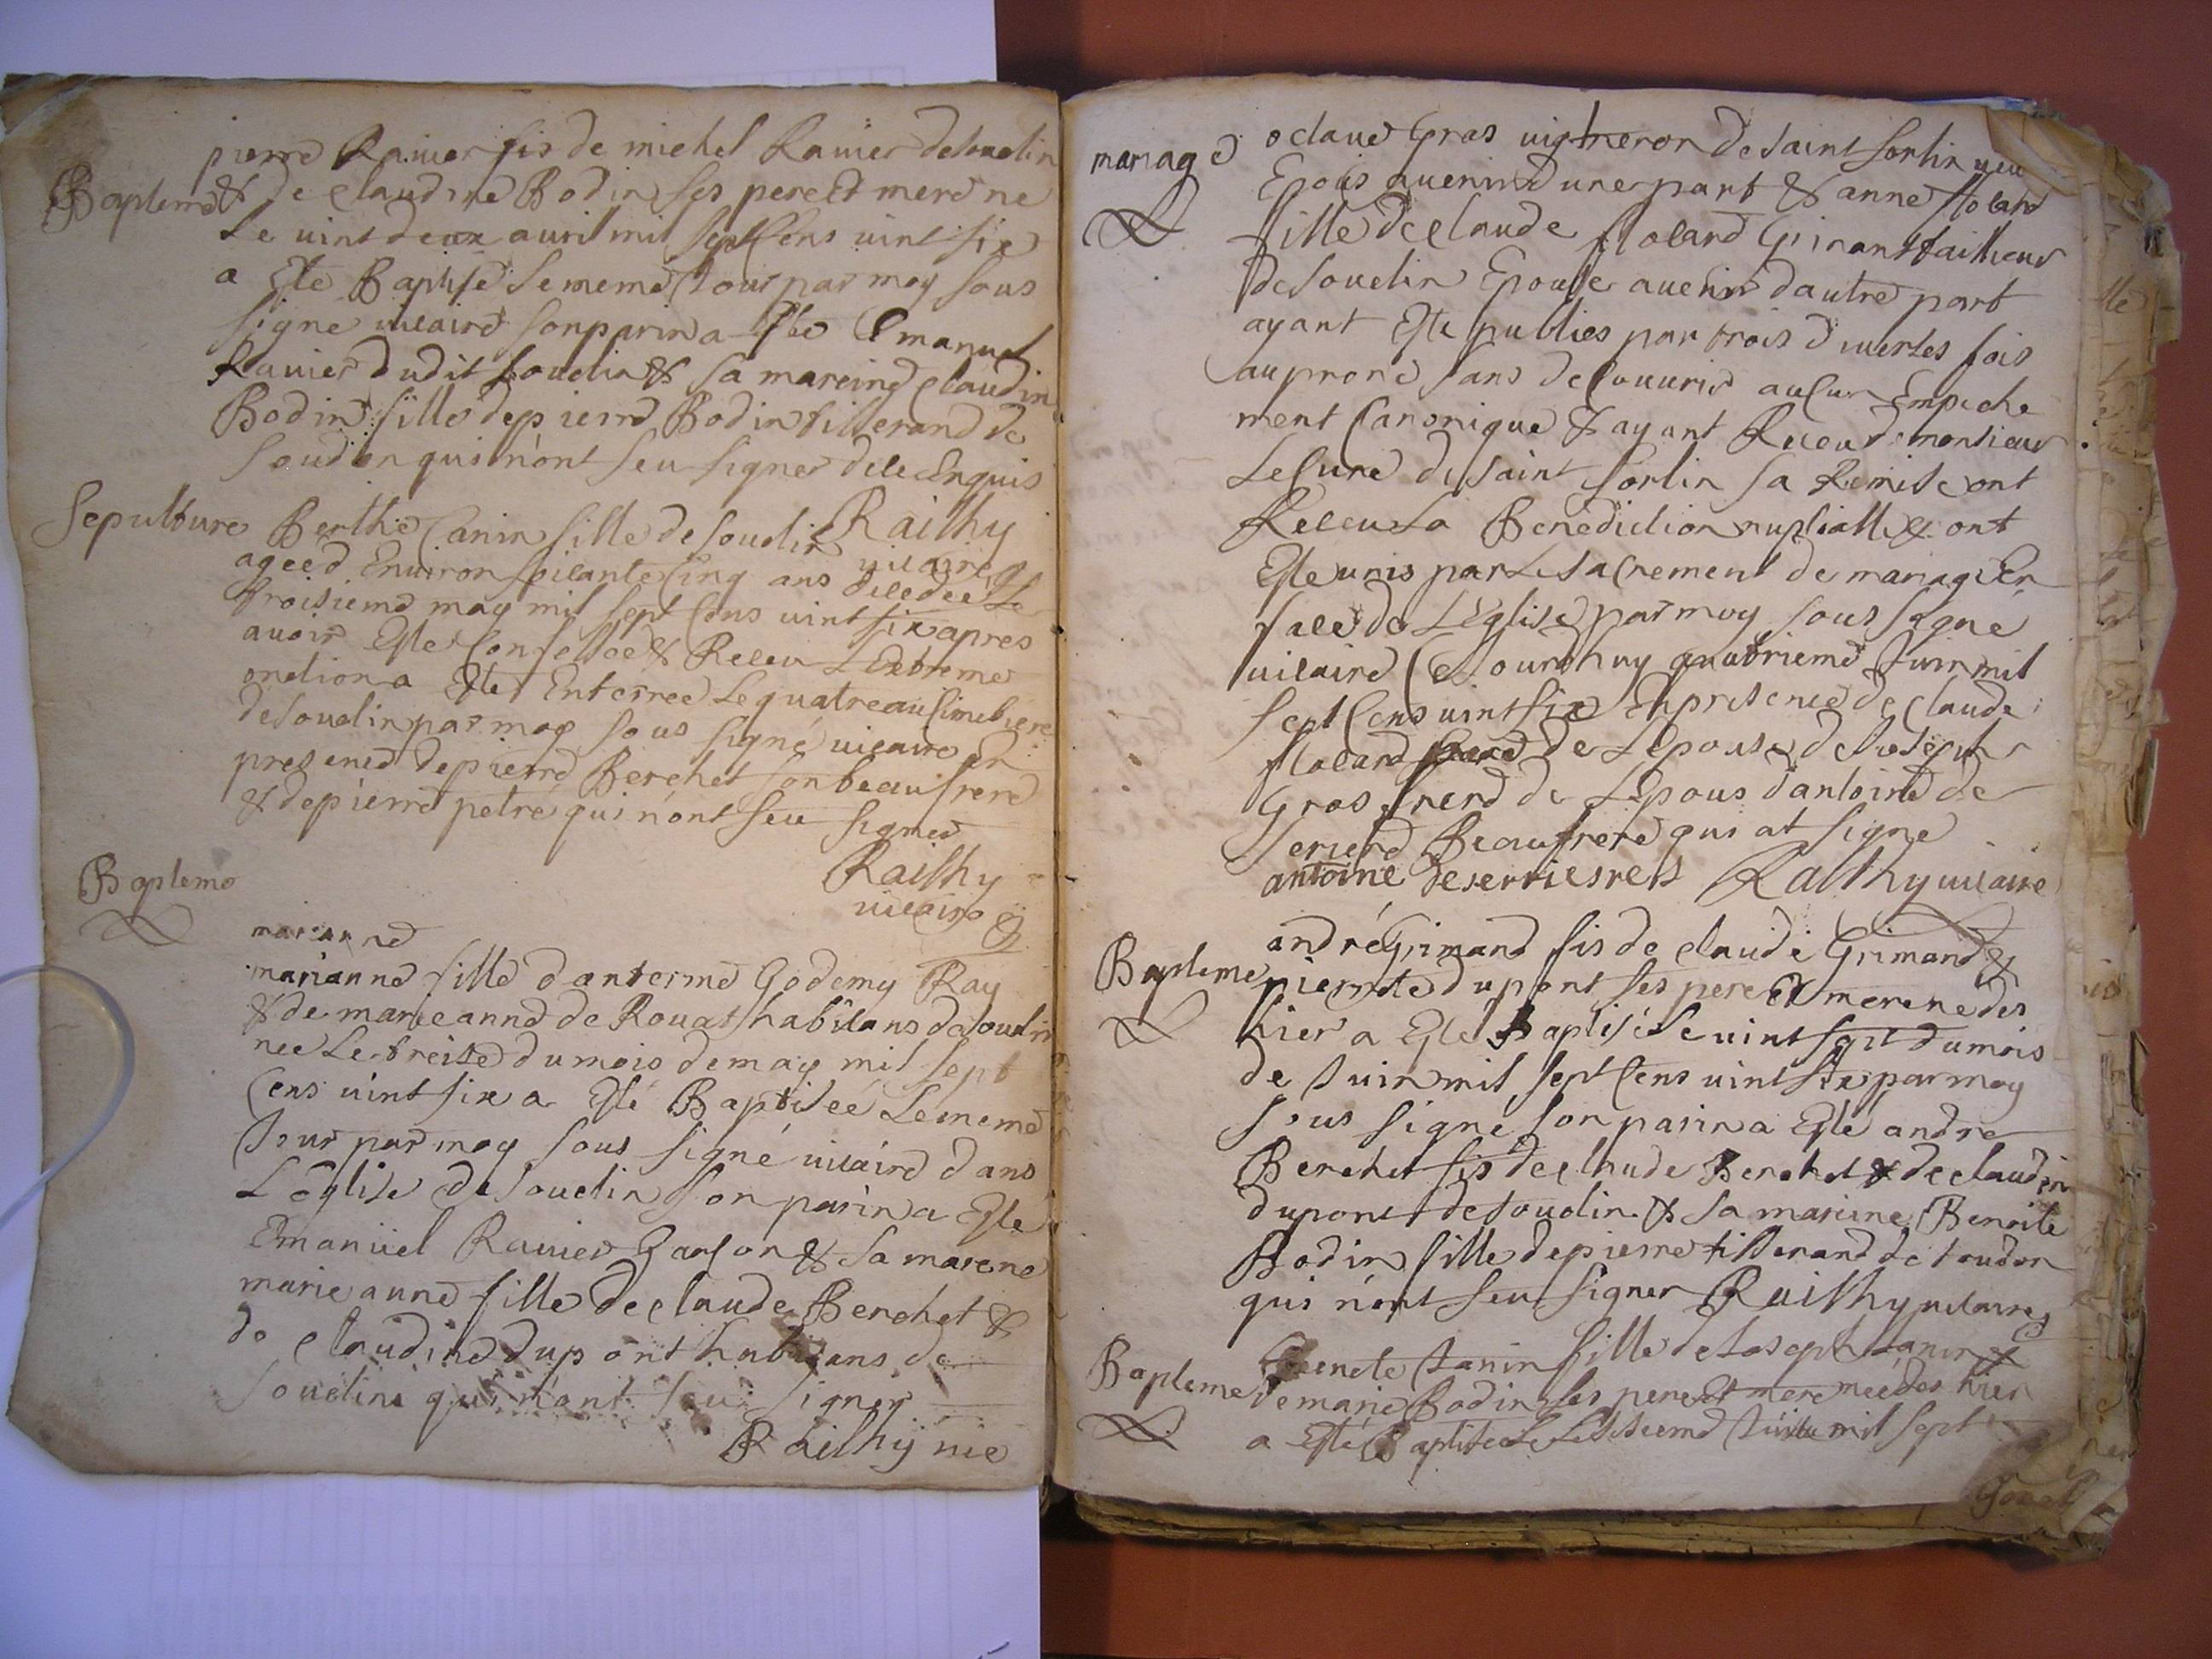 pierre Rauier fis de michel Rauier de Souclin
Bapteme & de Claudine Bodin ses pere Et mere ne
Le uint deux auril mil sept Cens uint six
a Esté Baptise le meme Jour par moy sous
signe uicaire son parin a Esté Emanuel
Rauier dudit Souclin & sa mareine Claudin
Bodin fille de pierre Bodin tisserand de
Soudon qui n'ont seu signer de ce Enquis
Railhy
uicaire
Sepulture Berthe Canin fille de Souclin
agée d'Enuiron soisante Cinq ans decedée Le
troisieme may mil sept Cens uint six apres
auoir Esté Confessée & Receu L'Extreme
onction a Esté Enterree Le quatre au simetiere
de Souclin par moy sous signé uicaire En
presence de pierre Berchet son beaufrere
& de pierre petre qui n'ont seu signer
Railhy
uicaire
Bapteme
marianne
marianne fille d'anterme Godemy Ray
& de marie anne de Rouat habitans de Souclin
née Le treise du mois de may mil sept
Cens uint six a Esté Baptisée Le meme
Jour par moy sous signé uicaire dans
L'eglise de Souclin son parin a Esté
Emanuel Rauier Garson & sa marene
marie anne fille de Claude Berchet &
de Claudine dupont habitans de
Souclin qui n'ont seu signer
Railhy uic
mariage octaue Gras uigneron de saint Sorlin
Epous auenir d'une part & anne flocard
fille de Claude flocard tailleur
de Souclin Epouse auenir d'autre part
ayant Esté publies par trois diuerses fois
au prone sans decouurir auCun Empeche
ment Canonique & ayant Receu de monsieur
Le Curé de saint Sorlin sa Remise ont
Receu La Benediction nuptialle & ont
Esté unis par Le saCrement de mariage En
face de L'Eglise par moy sous signé
uicaire Ce Jourdhuy quatrieme Juin mil
sept Cens uint six En presence de Claude
flocard pere de L'epouse de Joseph
Gras frere de L'Epous d'antoine de
seriere Beaufrere qui at signe
antoine deserriesres Railhy uicaire
andré Grimand fis de Claude Grimand &
Bapteme pierrete dupont ses pere Et mere ne des
hier a Esté Baptisé Le uint sept du mois
de Juin mil sept Cens uint six par moy
sous signé son parin a Esté andre
Berchet fis de Claude Berchet & de Claudin
dupont de Souclin & sa mareine Benoite
Bodin fille de pierre tisserand de Soudon
qui n'ont seu signer Railhy uicaire
Janin fille de Joseph Janin &
Bapteme de marie Bodin ses pere Et mere née des hier
a Esté Baptisée Le Juillet mil sept